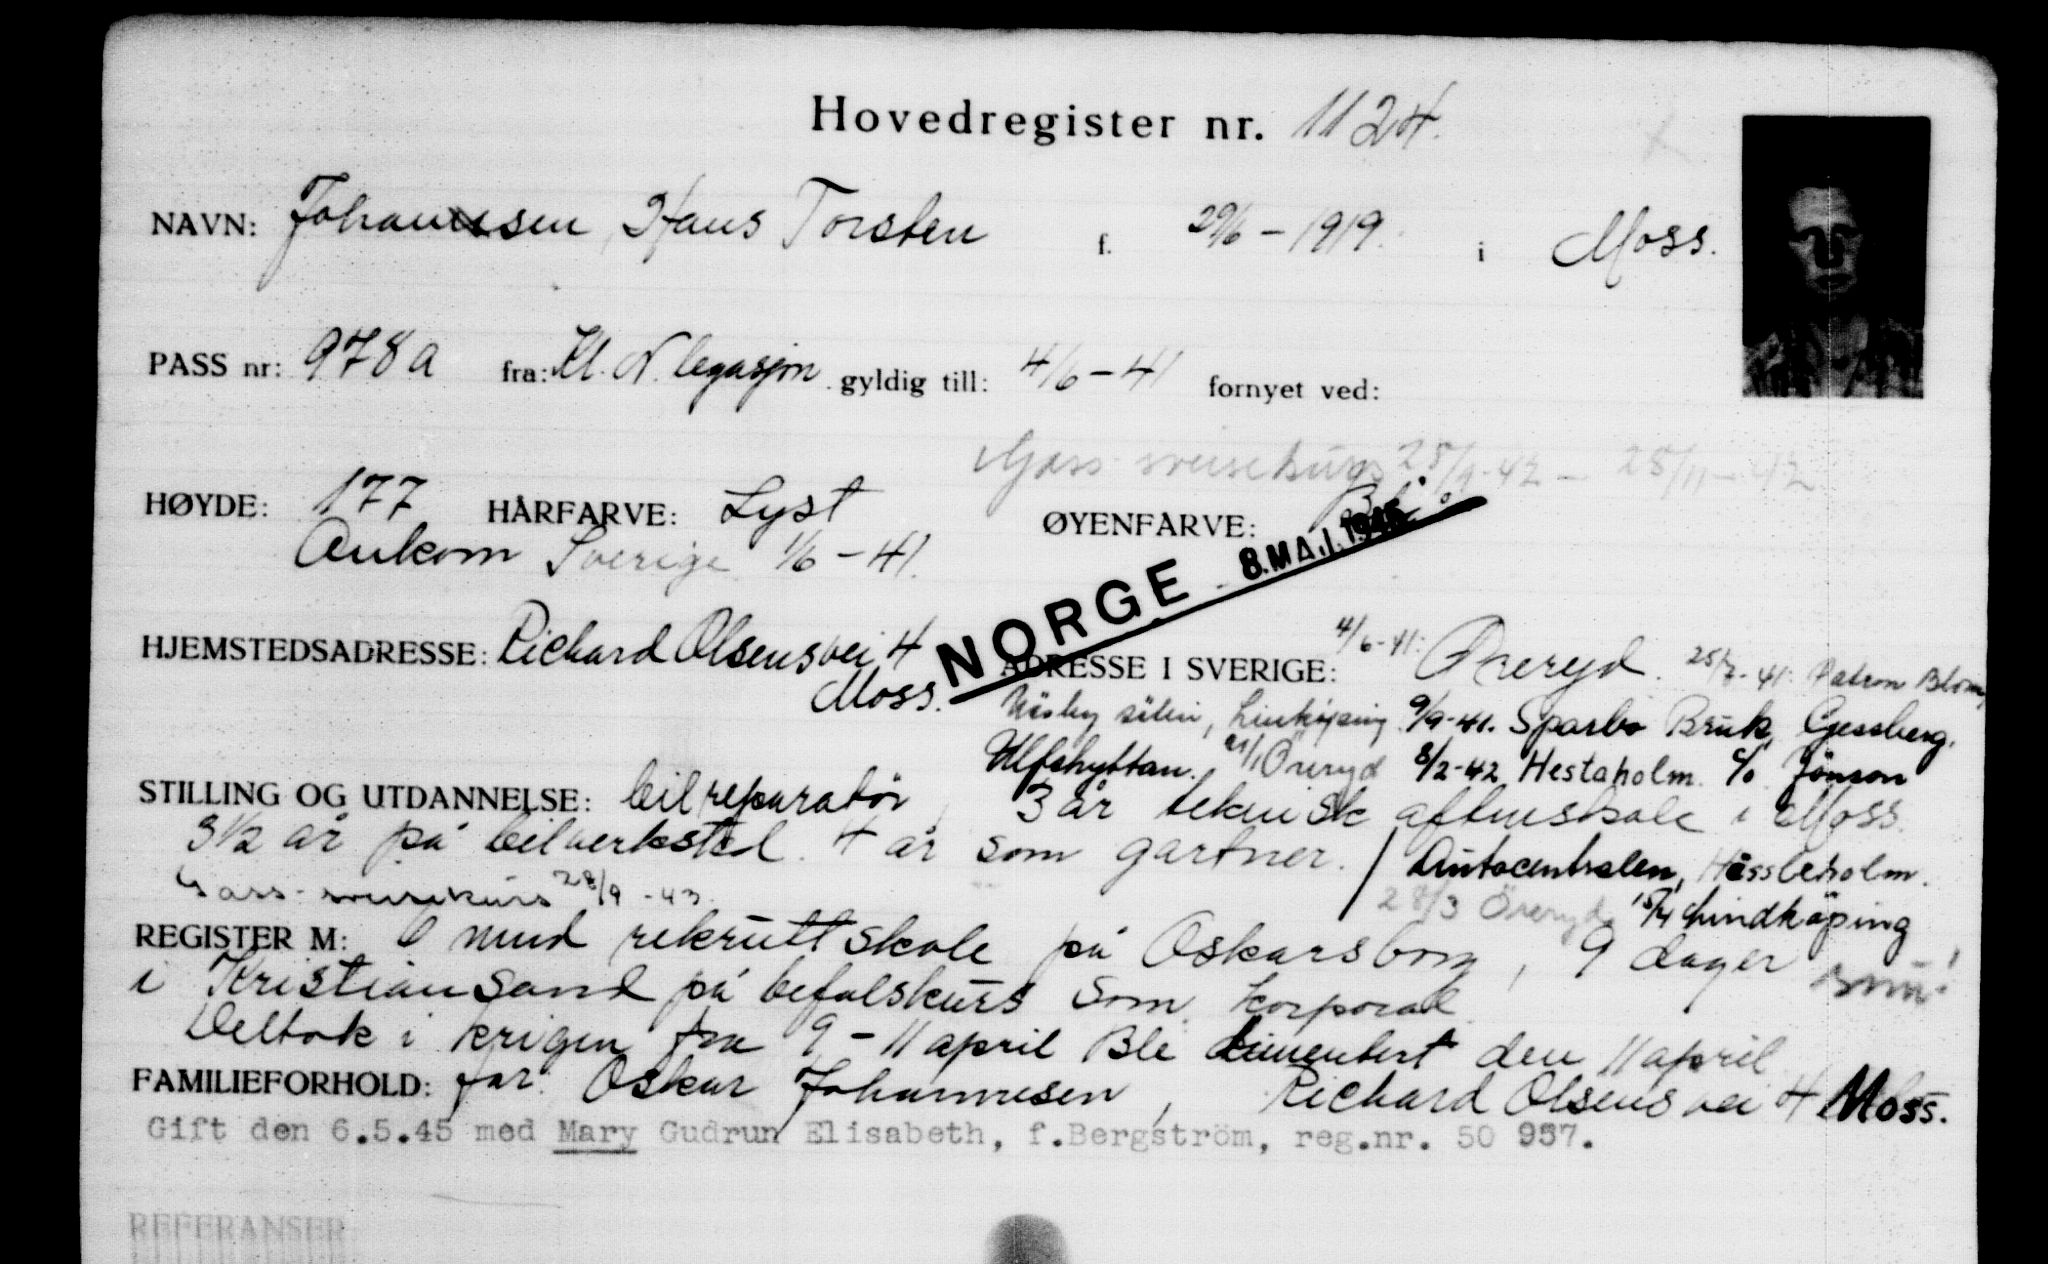 Hovedregister nr. 1124.
NAVN: Johansen, Hans Torsten f. 29/6 - 1919. i Moss.
PASS nr: 978a fra: Kl. N. legasjon gyldig till: 4/6 - 41 fornyet ved:
Gass sveisekurs 25/9-42 - 25/11-42
HØYDE: 177 HÅRFARVE: Lyst ØYENFARVE: Blå
Ankom Sverige 1/6 - 41.
NORGE 8. MAJ. 1945
HJEMSTEDSADRESSE: Richard Olsensvei 4 Moss.
ADRESSE I SVERIGE: 4/6-41: Öreryd. 25/7-41: Patron Blom,
Linköping 9/9-41. Sparbo Bruk, Gessberg.
Ulfshyttan. 21/1 Öreryd 8/2-42 Hestaholm. c/o Jönson
STILLING OG UTDANNELSE: bilreparatør, 3 år teknisk aftenskole i Moss.
3 1/2 år på bilverksted. 4 år som gartner. / Autocentralen, Hässleholm.
Gass-sveisekurs 28/9 -43. 28/3 Öreryd, 15/4 Lindköping
REGISTER M: 6 mnd rekruttskole på Oskarsborg, 9 dager
i Kristiansand på befalskurs som korporal.
Deltok i krigen fra 9 - 11 april Ble dimentert den 11 april
FAMILIEFORHOLD: far: Oskar Johannesen, Richard Olsens vei 4 Moss.
Gift den 6.5.45 med Mary Gudrun Elisabeth, f.Bergström, reg.nr. 50 957.
REFERANSER: